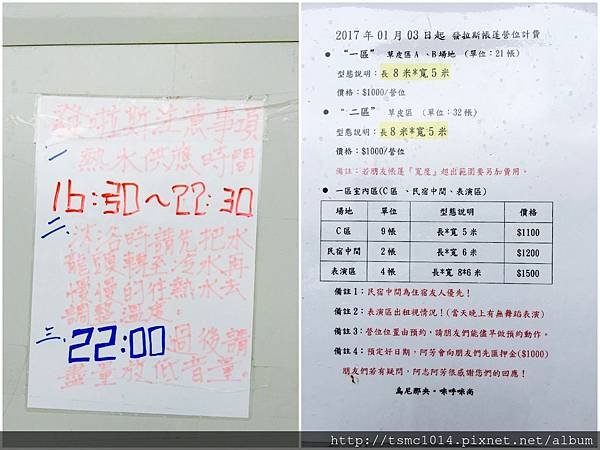 發啦斯注意事項
一、熱水供應時間
16:30~22:30
二、沐浴時請先把水
龍頭轉至冷水再
慢慢的往熱水去
調整溫度。
三、22:00過後請
盡量放低音量。
2017年01月03日起 發拉斯帳蓬營位計費
● “一區” 草皮區A、B場地 (單位:21帳)
型態說明:長8米*寬5米
價格:$1000/營位
● “二區” 草皮區 (單位:32帳)
型態說明:長8米*寬5米
價格:$1000/營位
備註:若朋友帳蓬『寬度』超出範圍要另加費用。
● 一區室內區(C區、民宿中間、表演區)
場地 單位 型態說明 價格
C區 9帳 長*寬 5米 $1100
民宿中間 2帳 長*寬 6米 $1200
表演區 4帳 長*寬 8*6米 $1500
備註1:民宿中間為住宿友人優先!
備註2:表演區出租視情況!(當天晚上有無舞蹈表演)
備註3:營位位置由預約,請朋友們能儘早做預約動作。
備註4:預定好日期,阿芳會向朋友們先匯押金($1000)
朋友們若有疑問,阿志阿芳很感謝您們的回應!
烏尼那央‧咪呼咪尚
http://tsmc1014.pixnet.net/album